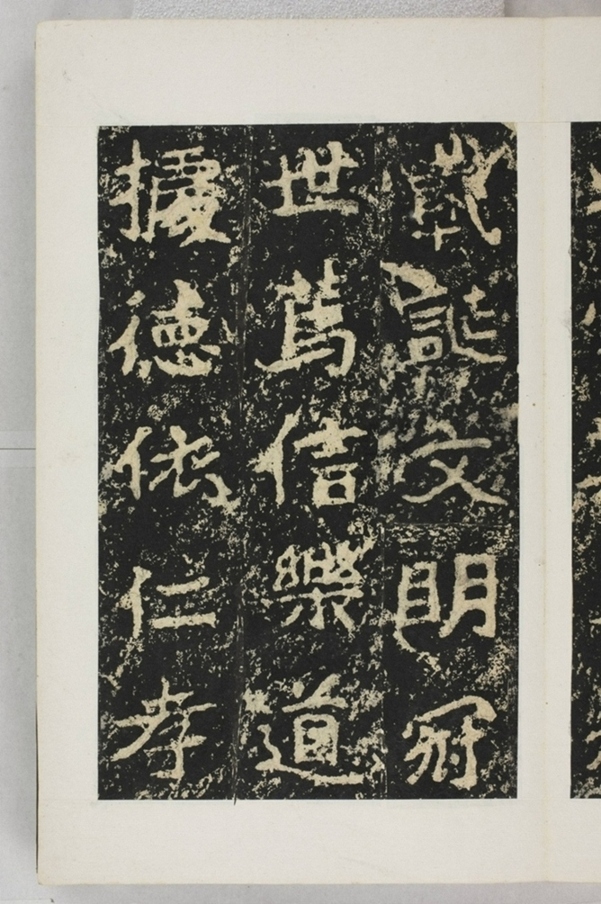 載誕文明冠
世篤信樂道
據德依仁孝